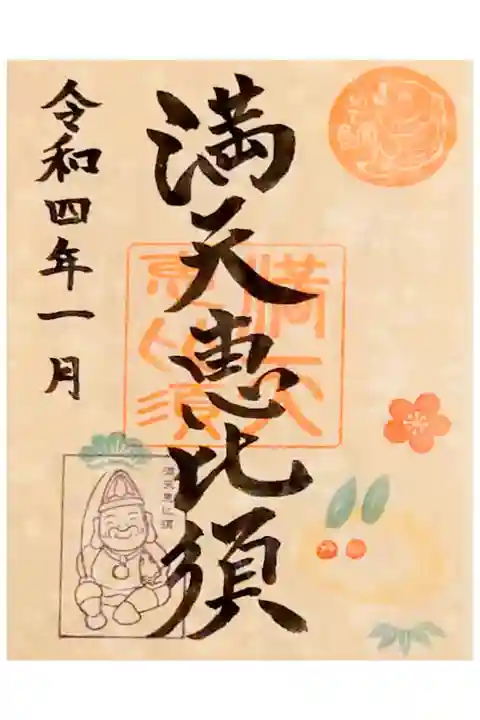 満天恵比須
令和四年一月
満天
恵比須
満天恵比須